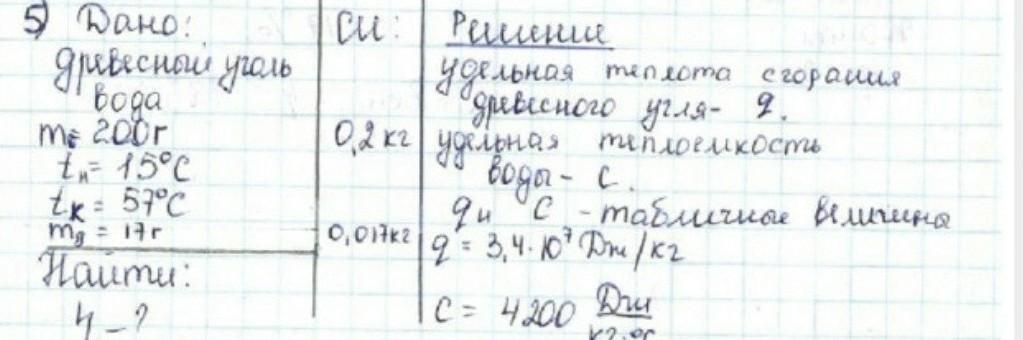 5) Дано:
древесный уголь
вода
m = 200г
tн = 15°C
tк = 57°C
mд = 17г
Найти:
η - ?
СИ:
0,2 кг
0,017кг
Решение
удельная теплота сгорания
древесного угля - q.
удельная теплоемкость
воды - C.
q и C - табличные величины
q = 3,4·10⁷ Дж/кг
C = 4200 Дж
кг·°C